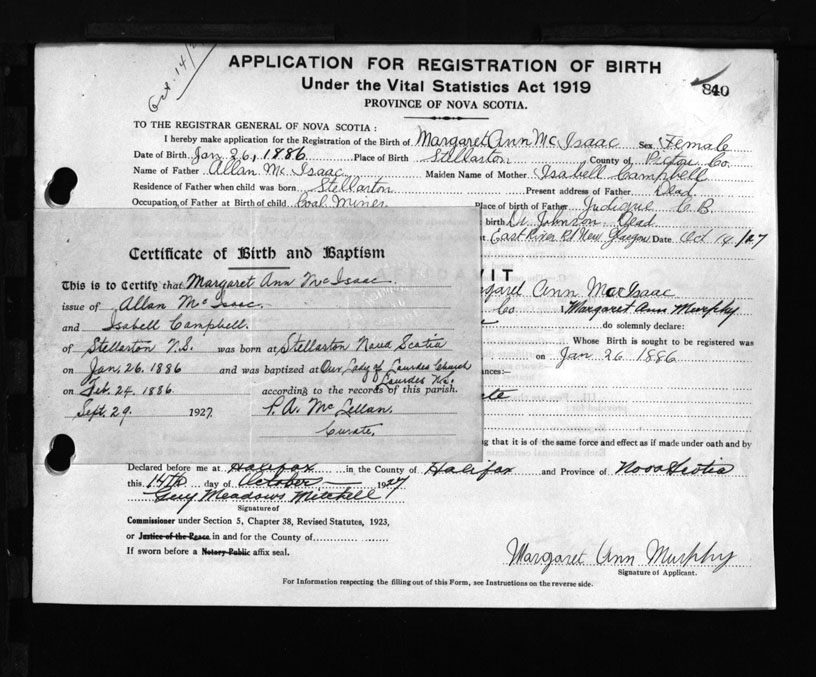 Oct. 14/27
APPLICATION FOR REGISTRATION OF BIRTH
Under the Vital Statistics Act 1919
840
PROVINCE OF NOVA SCOTIA.
TO THE REGISTRAR GENERAL OF NOVA SCOTIA :
I hereby make application for the Registration of the Birth of Margaret Ann Mc Isaac Sex Female
Date of Birth Jan 26, 1886 Place of Birth Stellarton County of Pictou Co
Name of Father Allan Mc Isaac Maiden Name of Mother Isabell Campbell
Residence of Father when child was born Stellarton Present address of Father Dead
Occupation of Father at Birth of child Coal Miner Place of birth of Father Judique C.B.
birth Dr Johnson Dead
East River Rd New Glasgow Date Oct 14/27
VIT
Margaret Ann MacIsaac
Co Margaret Ann Murphy
do solemnly declare:
Whose Birth is sought to be registered was
on Jan 26 1886
ances:—
ng that it is of the same force and effect as if made under oath and by
Certificate of Birth and Baptism
This is to Certify that Margaret Ann McIsaac
issue of Allan McIsaac.
and Isabell Campbell.
of Stellarton N.S. was born at Stellarton Nova Scotia
on Jan. 26. 1886 and was baptized at Our Lady of Lourdes Church
Lourdes N.S.
on Feb. 24. 1886 according to the records of this parish.
Sept. 29 1927. P. A. McLellan.
Curate.
Declared before me at Halifax in the County of Halifax and Province of Nova Scotia
this 14th day of October 1927
Guy Meadows Mitchell
Signature of
Commissioner under Section 5, Chapter 38, Revised Statutes, 1923,
or Justice of the Peace in and for the County of
If sworn before a Notary Public affix seal.
Margaret Ann Murphy
Signature of Applicant.
For Information respecting the filling out of this Form, see Instructions on the reverse side.